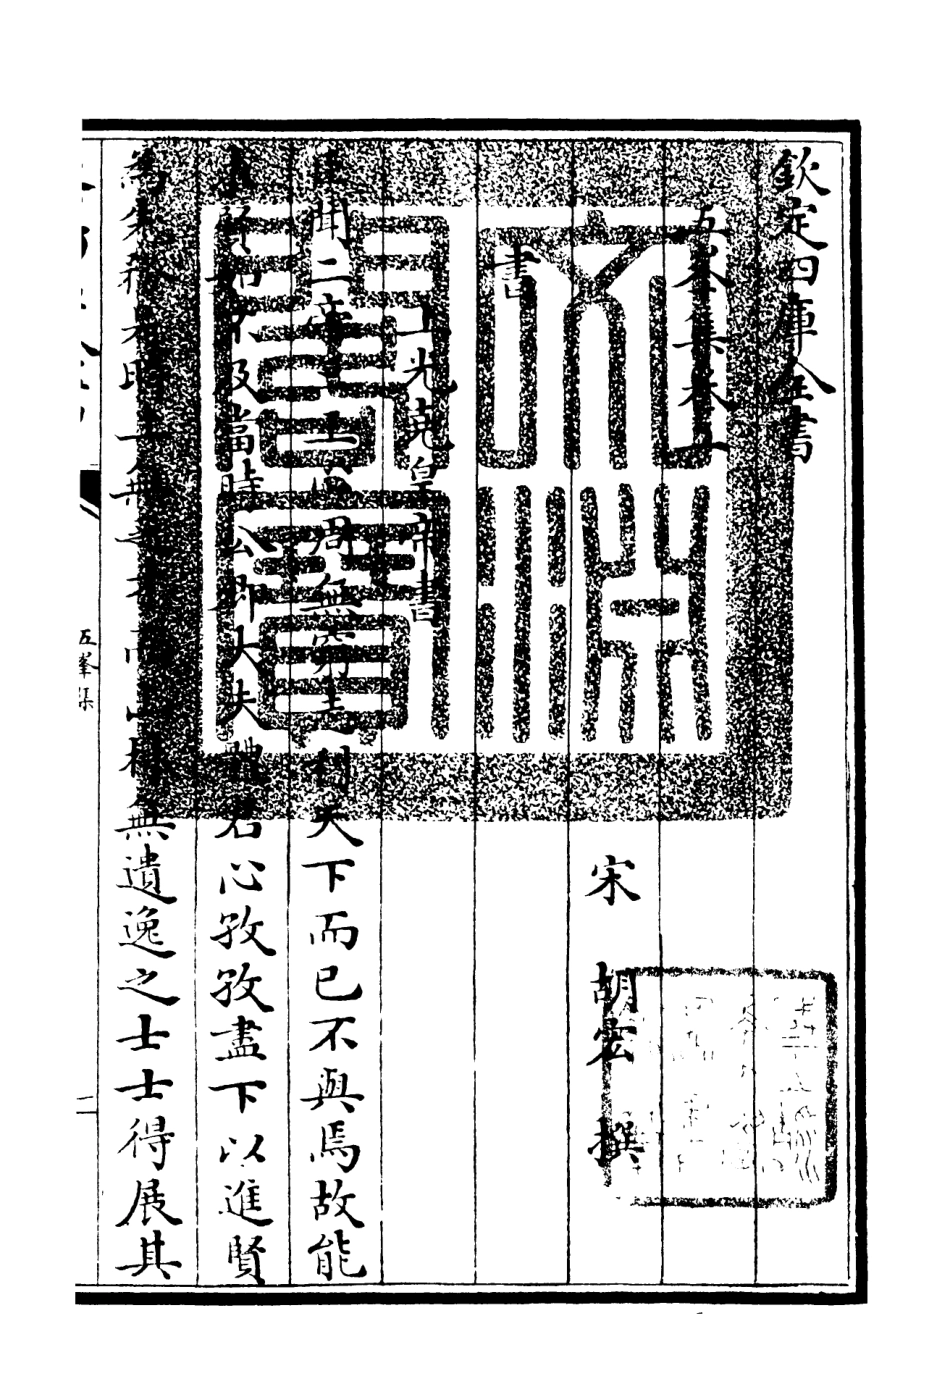 欽定四庫全書
五峯集卷二
宋 胡宏 撰
書
上光堯皇帝書
臣聞二帝三王心周無窮志利天下而已不與焉故能
求賢如不及當時公卿大夫體君心孜孜盡下以進賢
為先務是時上無乏才而山林無遺逸之士士得展其
五峯集